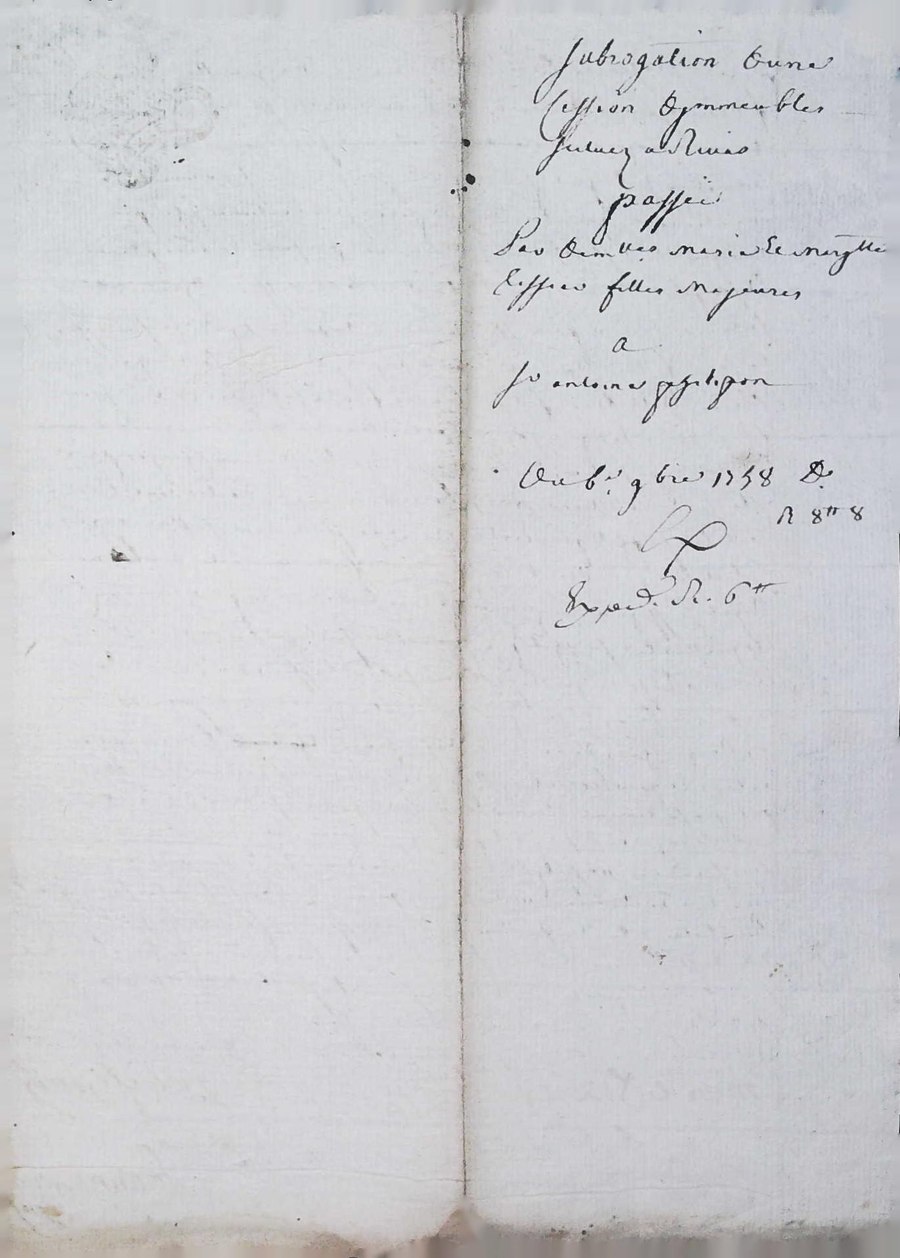 subrogation dune
Cession dymmeubles
situez a Rives
passée
Par demlles Marie et Margtte
Tissier filles Majeures
a
sr antoine phelipon
Du 6e 9bre 1758
R 8tt 8
Exped. R. 6tt